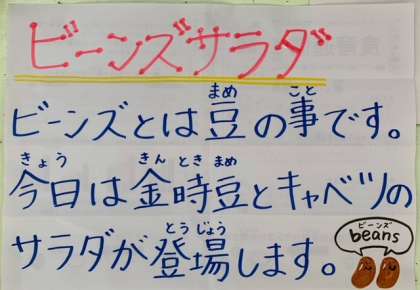 ビーンズサラダ
まめ こと
ビーンズとは豆の事です。
きょう きん とき まめ
今日は金時豆とキャベツの
とう じょう
サラダが登場します。
ビーンズ
beans